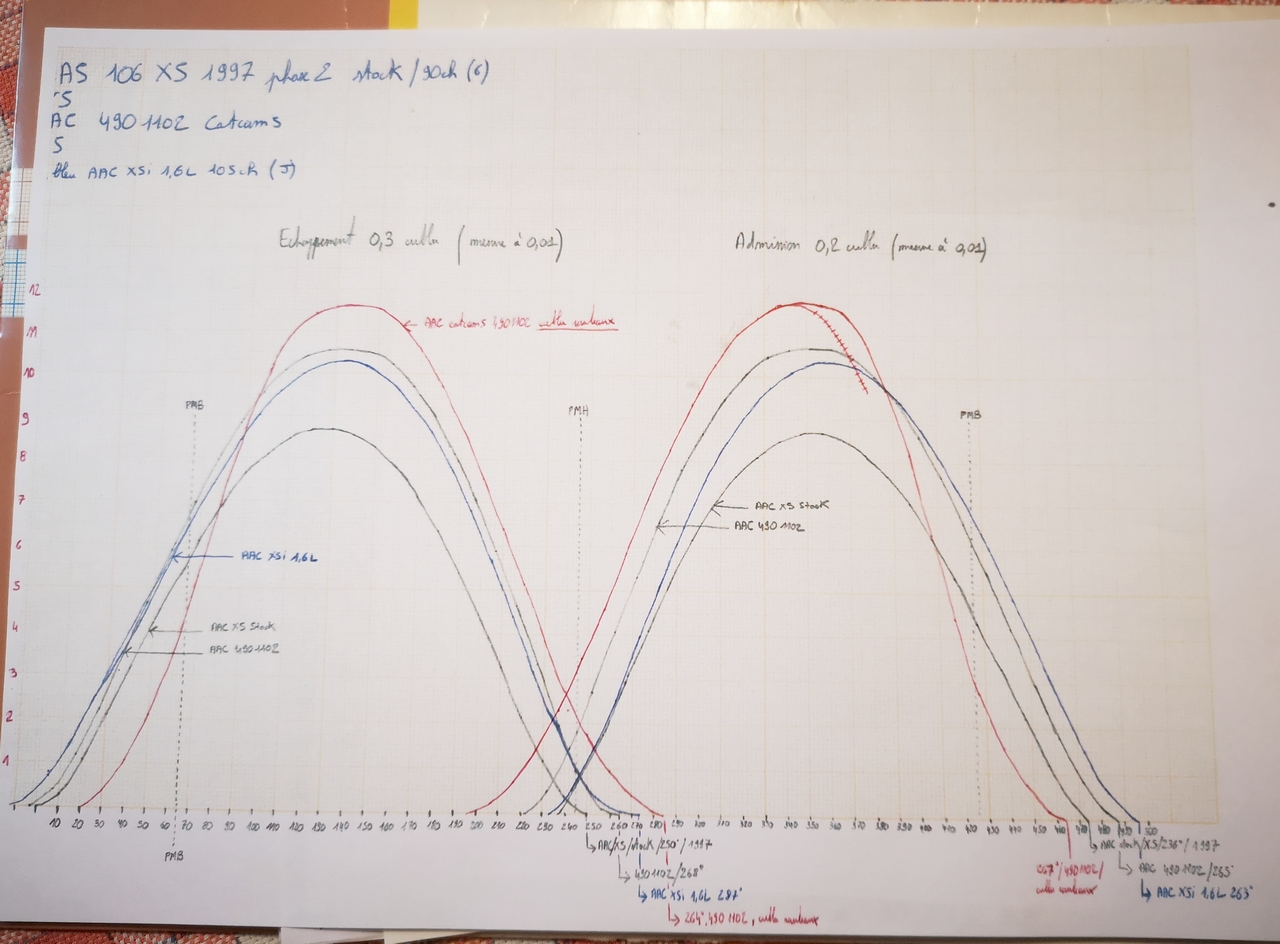 AS 106 XS 1997 phase 2 stock/90ch (6)
'S
AC 4901102 Catcams
S
bleu AAC XSi 1,6L 105ch (J)
Echappement 0,3 culbu (mesure à 0,01)
Admission 0,2 culbu (mesure à 0,01)
12
AAC catcams 4901102 culbu
11
10
PMB
PMH
PMB
9
8
7
AAC XS Stock
AAC 4901102
6
AAC XSi 1,6L
5
4
AAC XS Stock
AAC 4901102
3
2
1
10 20 30 40 50 60 70 80 90 100 110 120 130 140 150 160 170 180 190 200 210 220 230 240 250 260 270 280 290 300 310 320 330 340 350 360 370 380 390 400 410 420 430 440 450 460 470 480 490 500
PMB
AAC/XS/stock/250°/1997
4901102/268°
AAC XSi 1,6L 287°
264°, 4901102, culbu
267°/4901102/
culbu
AAC stock/XS/236°/1997
AAC 4901102/265°
AAC XSi 1,6L 263°